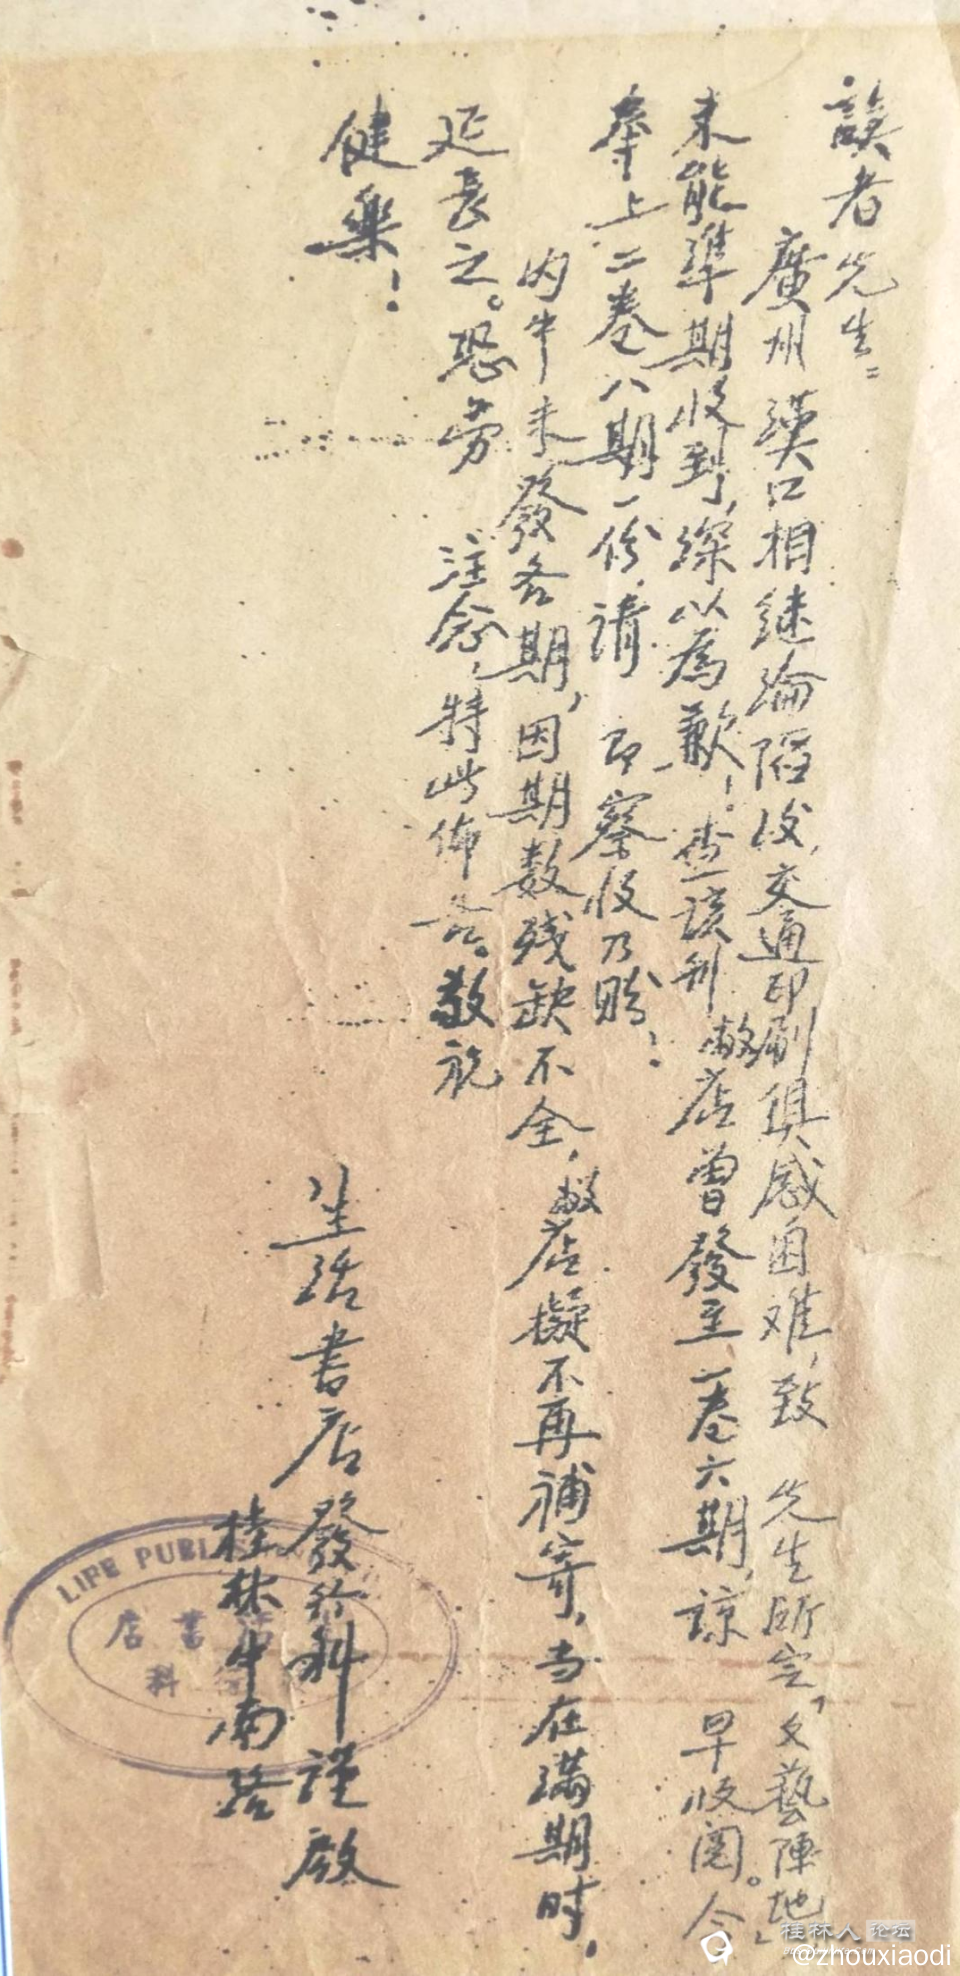 讀者先生：
廣州漢口相继淪陷後，交通印刷俱感困难，致　先生所定「文藝陣地」
未能準期收到，深以為歉！查该刊敝店曾發至一卷六期，諒　早收閱。今
奉上二卷八期一份，请　即察收乃盼！
内中未發各期，因期数残缺不全，敝店擬不再補寄，当在满期时，
延長之。恐劳　注念，特此佈告。敬祝
健樂！
生活書店發行科謹啟
桂林中南路
LIFE PUBLI
店書活
科
桂林人论坛
@zhouxiaodi